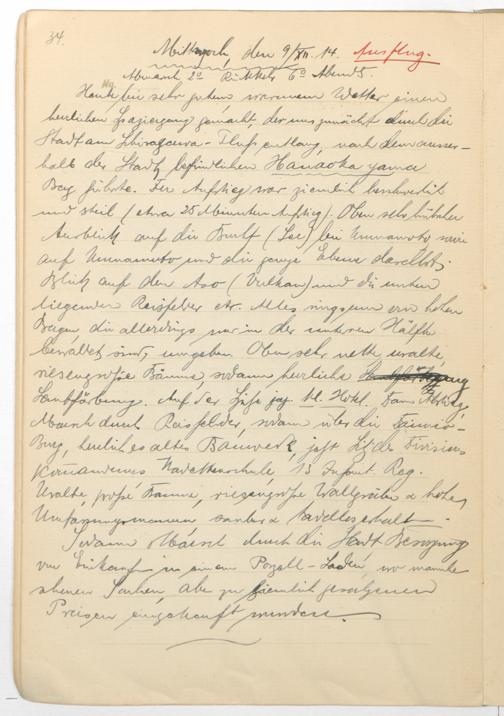 34.
Mittwoch, den 9/XII. 14. Ausflug.
Abmarsch 2º Rückkehr 6º Abends.
Heute bei sehr gutem warmem Wetter einen
herrlichen Spaziergang gemacht, der uns zunächst durch die
Stadt am Shiragawa-Fluß entlang, nach dem ausser-
halb der Stadt befindlichen Hanaoka yama
Berg führte. Der Aufstieg war ziemlich beschwerlich
und steil (etwa 25 Minuten Aufstieg). Oben sehr hübscher
Ausblick auf die Bucht (See) bei Kumamoto sowie
auf Kumamoto und die ganze Ebene daselbst.
Blick auf den Aso (Vulkan) und die unten
liegenden Reisfelder etc. Alles ringsum von hohen
Bergen die allerdings nur in der unteren Hälfte
bewaldet sind, umgeben. Oben sehr nette uralte,
riesengroße Bäume, sodann herrliche
Laubfärbung. Auf der Spitze jap. Hotel. Dann Abstieg,
Marsch durch Reisfelder, sodann über die
Burg, herrliches altes Bauwerk, jetzt Sitz des Divisions
Kommandeurs Kadettenschule, 13 Infant. Reg.
Uralte, große Bäume, riesengroße Wallgräben & hohe
Umfassungsmauern sauber & tadellos erhalten.
Sodann Marsch durch die Stadt
von Einkauf in einem Porzell-Laden, wo manche
schönen Sachen, aber zu ziemlich gesalzenen
Preisen eingekauft wurden.